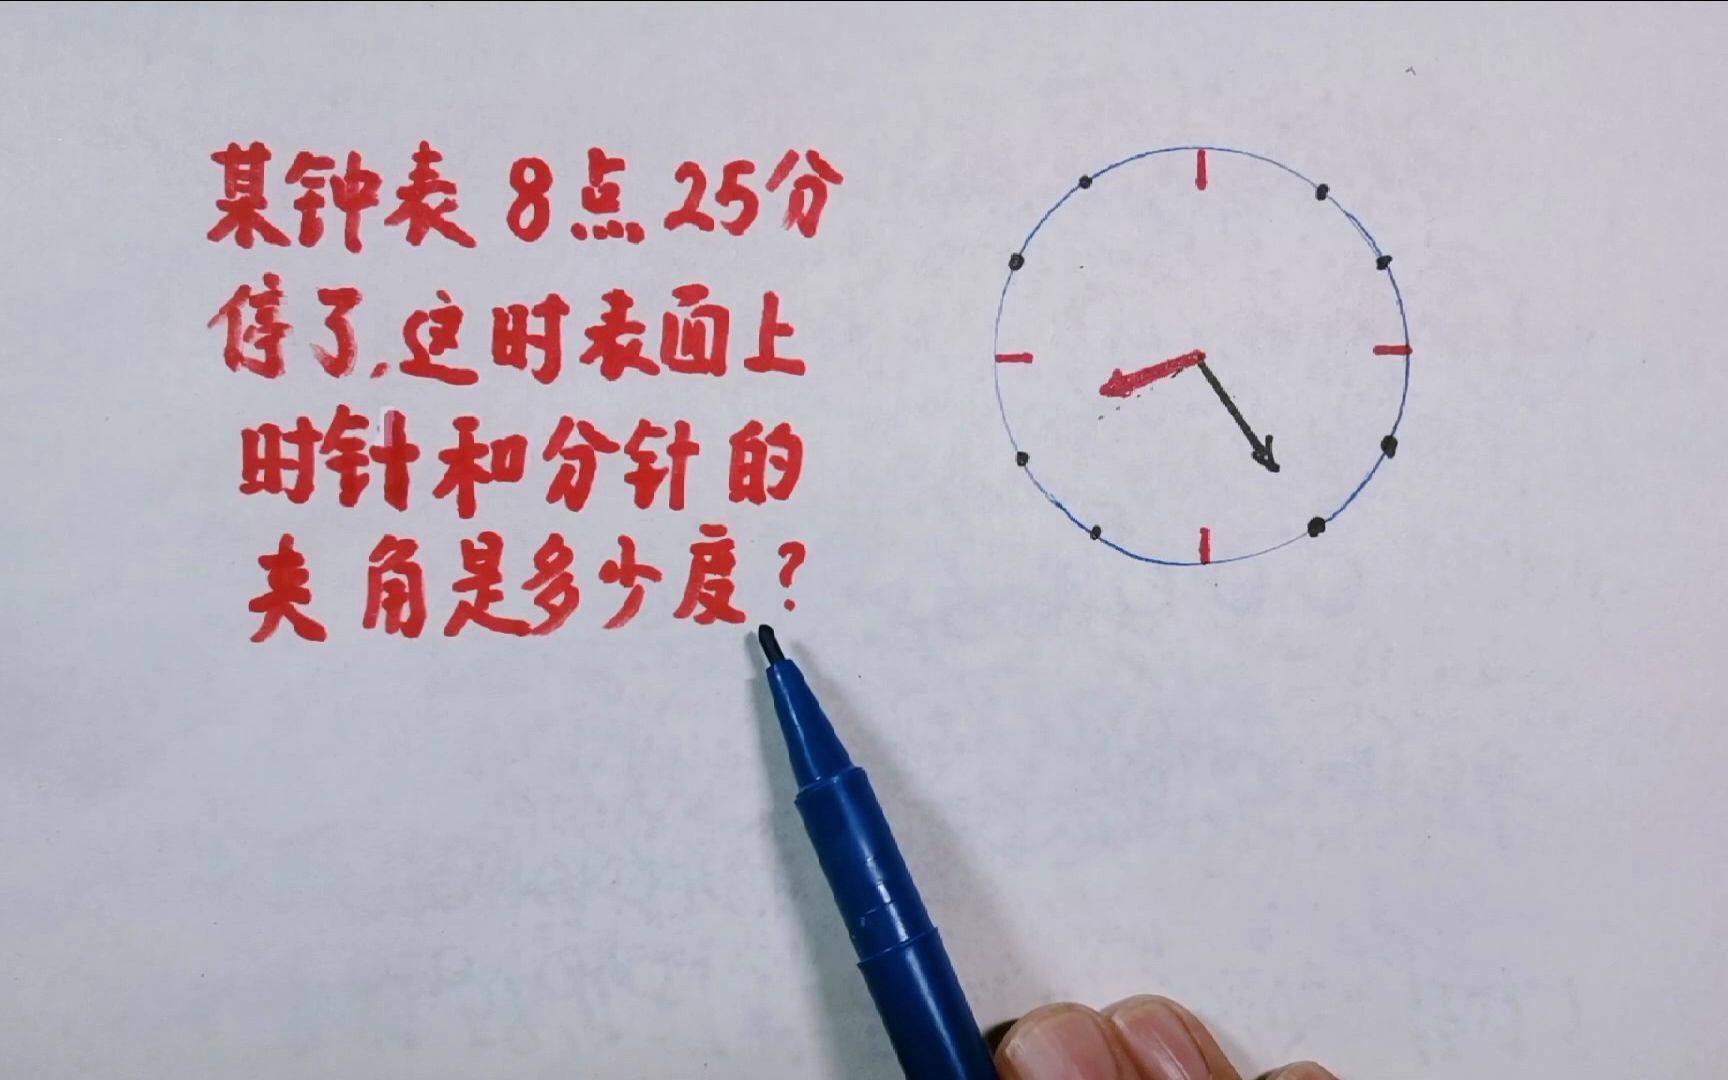 某钟表8点25分
停了.这时表面上
时针和分针的
夹角是多少度?